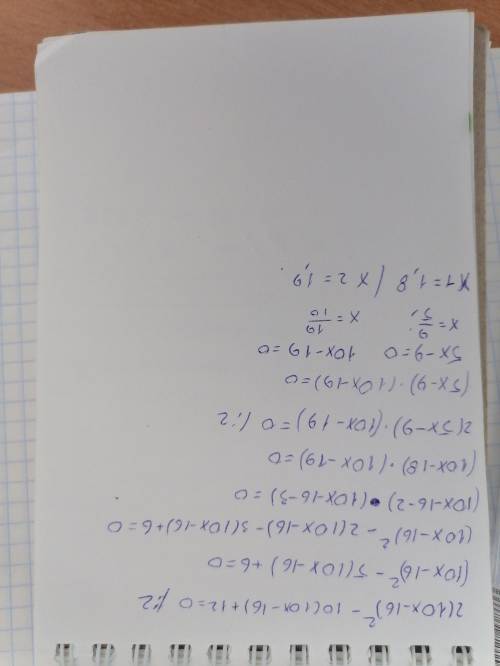 2(10x-16)² - 10(10x-16)+12=0 /:2
(10x-16)² - 5(10x-16)+6=0
(10x-16)² - 2(10x-16) - 3(10x-16)+6=0
(10x-16-2)·(10x-16-3)=0
(10x-18)·(10x-19)=0
2(5x-9)·(10x-19)=0 /:2
(5x-9)·(10x-19)=0
5x-9=0 10x-19=0
x=9/5, x=19/10
x1=1,8 / x2=1,9.